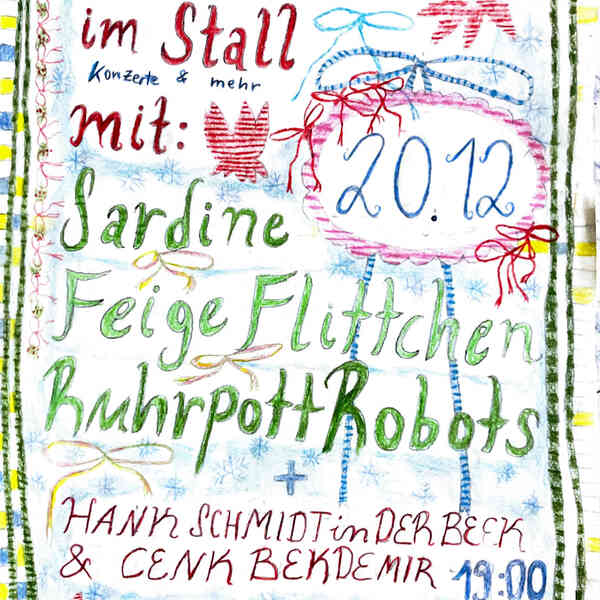 im Stall
Konzerte & mehr
mit:
20.12
Sardine
Feige Flittchen
Ruhrpott Robots
+
HANK SCHMIDT in DER BEEK
& CENK BEKDEMIR 19:00